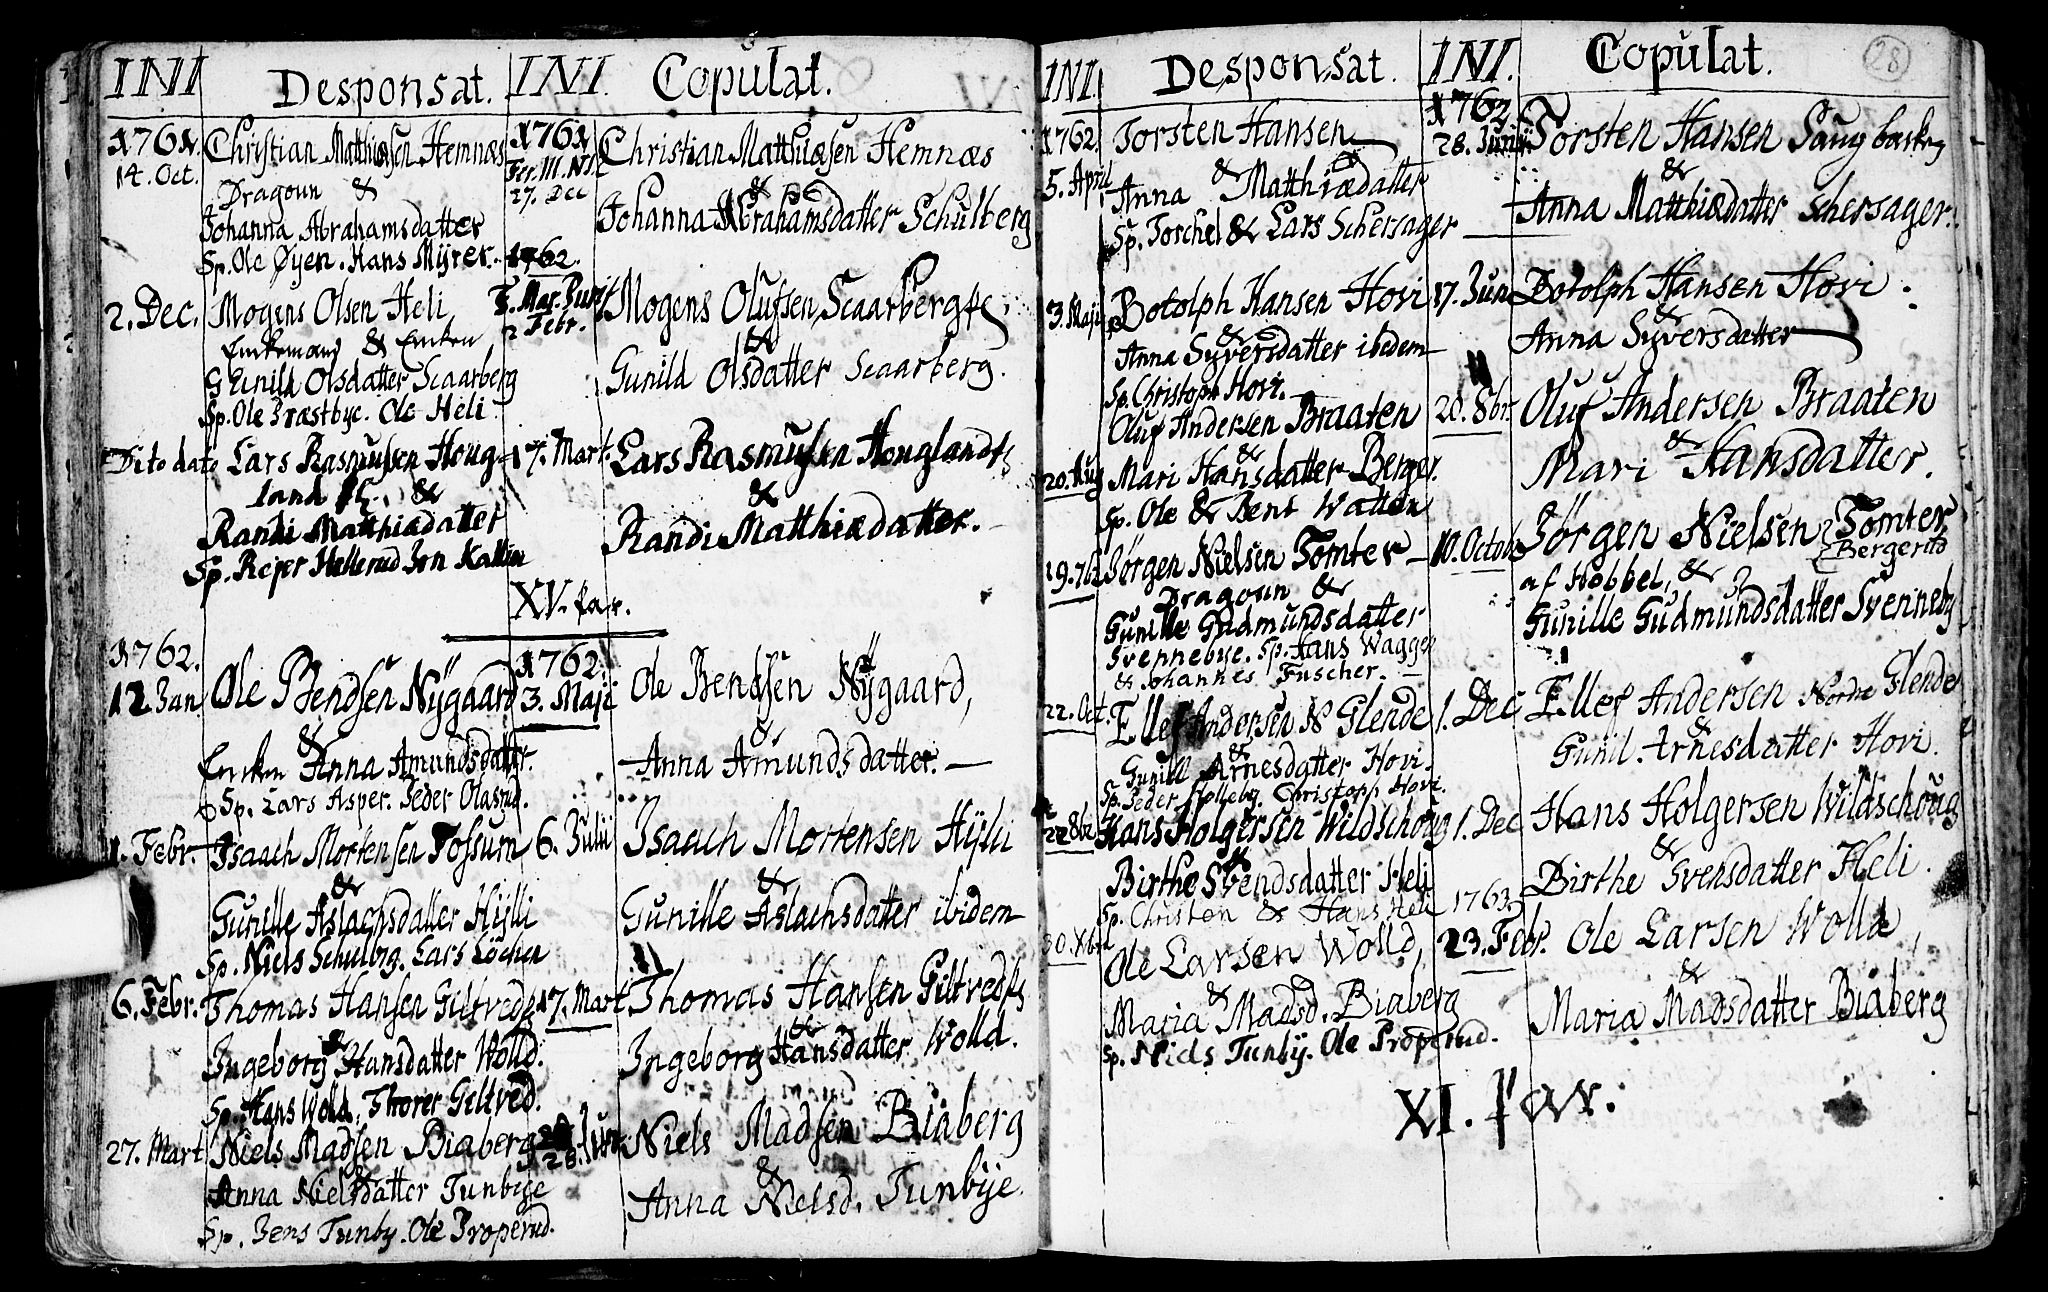 INI Desponsat.
1761.
14. Oct.
Christian Matthiæsen Hemnæs
Dragoun &
Johanna Abrahamsdatter
Sp. Ole Øyen. Hans Myrer.
2. Dec.
Mogens Olsen Heli
Enkemand & Enken
Gunild Olsdatter Scaarberg
Sp. Ole Præstbye. Ole Heli
Dito dato Lars Rasmussen Houg-
land &
Randi Matthiædatter
Sp. Rejer Hellerud Jon Kallin
1762.
12. Jan. Ole Bendsen Nÿgaard
&
Enken Anna Amundsdatter.
Sp. Lars Asper. Peder Olasrud.
1. Febr. Isaach Mortensen Fossum
&
Gunille Aslachsdatter Hÿlli
Sp. Niels Schulbrg. Lars Löchen
6. Febr. Thomas Hansen Giltvedt
&
Ingeborg Hansdatter Wolld.
Sp. Hans Wold. Thorer Giltved.
27. Mart Niels Madsen Biaberg
&
Anna Nielsdatter Tunbye
Sp. Jens Tunby. Ole Properud.
INI Copulat.
1761
Fer. M. Nt.
27. Dec
Christian Matthiæsen Hemnæs
&
Johanna Abrahamsdatter Schulberg
1762.
F. Mar. Purif.
2 Febr.
Mogens Olufsen Scaarberg
&
Gunild Olsdatter Scaarberg.
17. Mart. Lars Rasmussen Houglandt
&
Randi Matthiædatter.
XV. par.
1762
3. Maji
Ole Bendsen Nÿgaard,
&
Anna Amundsdatter.
6. Julii Isaach Mortensen Hÿlli
&
Gunille Aslachsdatter ibidem
17. Mart Thomas Hansen Giltvedt
&
Ingeborg Hansdatter Wolld.
28. Jun. Niels Madsen Biaberg
&
Anna Nielsd. Tunbye.
INI. Desponsat.
1762.
5. April
Torsten Hansen
&
Anna Matthiædatter
Sp. Torchel & Lars Schersager
3. Maji Botolph Hansen Hovi
&
Anna Syversdatter ibidem
Sp. Christoph Hovi.
Oluf Andersen Braaten
&
20. Aug Mari Hansdatter Berger.
Sp. Ole & Bent Watten
19. 7br Jørgen Nielsen Tomter
Dragoun &
Gunille Gudmundsdatter
Svennebye. Sp. Hans Wagge
& Johannes Fuscher.
22. Oct. Ellef Andersen N Glende
&
Gunill Arnesdatter Hovi.
Sp. Peder Holleby. Christoph Hovi.
22 8br Hans Holgersen Wildschoug
&
Birthe Svendsdatter Heli
Sp. Christen & Hans Heli
30. Xbr Ole Larsen Wolld,
&
Maria Madsd. Biaberg
Sp. Niels Tunbÿ. Ole Properud.
INI. Copulat. 28
1762
28. Junii Torsten Hansen Saugbaskeg
&
Anna Matthiædatter Schersager.
17. Jun Botolph Hansen Hovi.
&
Anna Syversdatter
20. 8br. Oluf Andersen Braaten
&
Mari Hansdatter.
10. Octob Jørgen Nielsen Tomter
Bergerud
af Hobbel, &
Gunille Gudmundsdatter Svenneby
1. Dec Ellef Andersen Nordre Glende
&
Gunil. Arnesdatter Hovi.
1. Dec Hans Holgersen Wildschoug
&
Birthe Svensdatter Heli.
1763
23. Febr. Ole Larsen Wolld,
&
Maria Madsdatter Biaberg
XI. par.